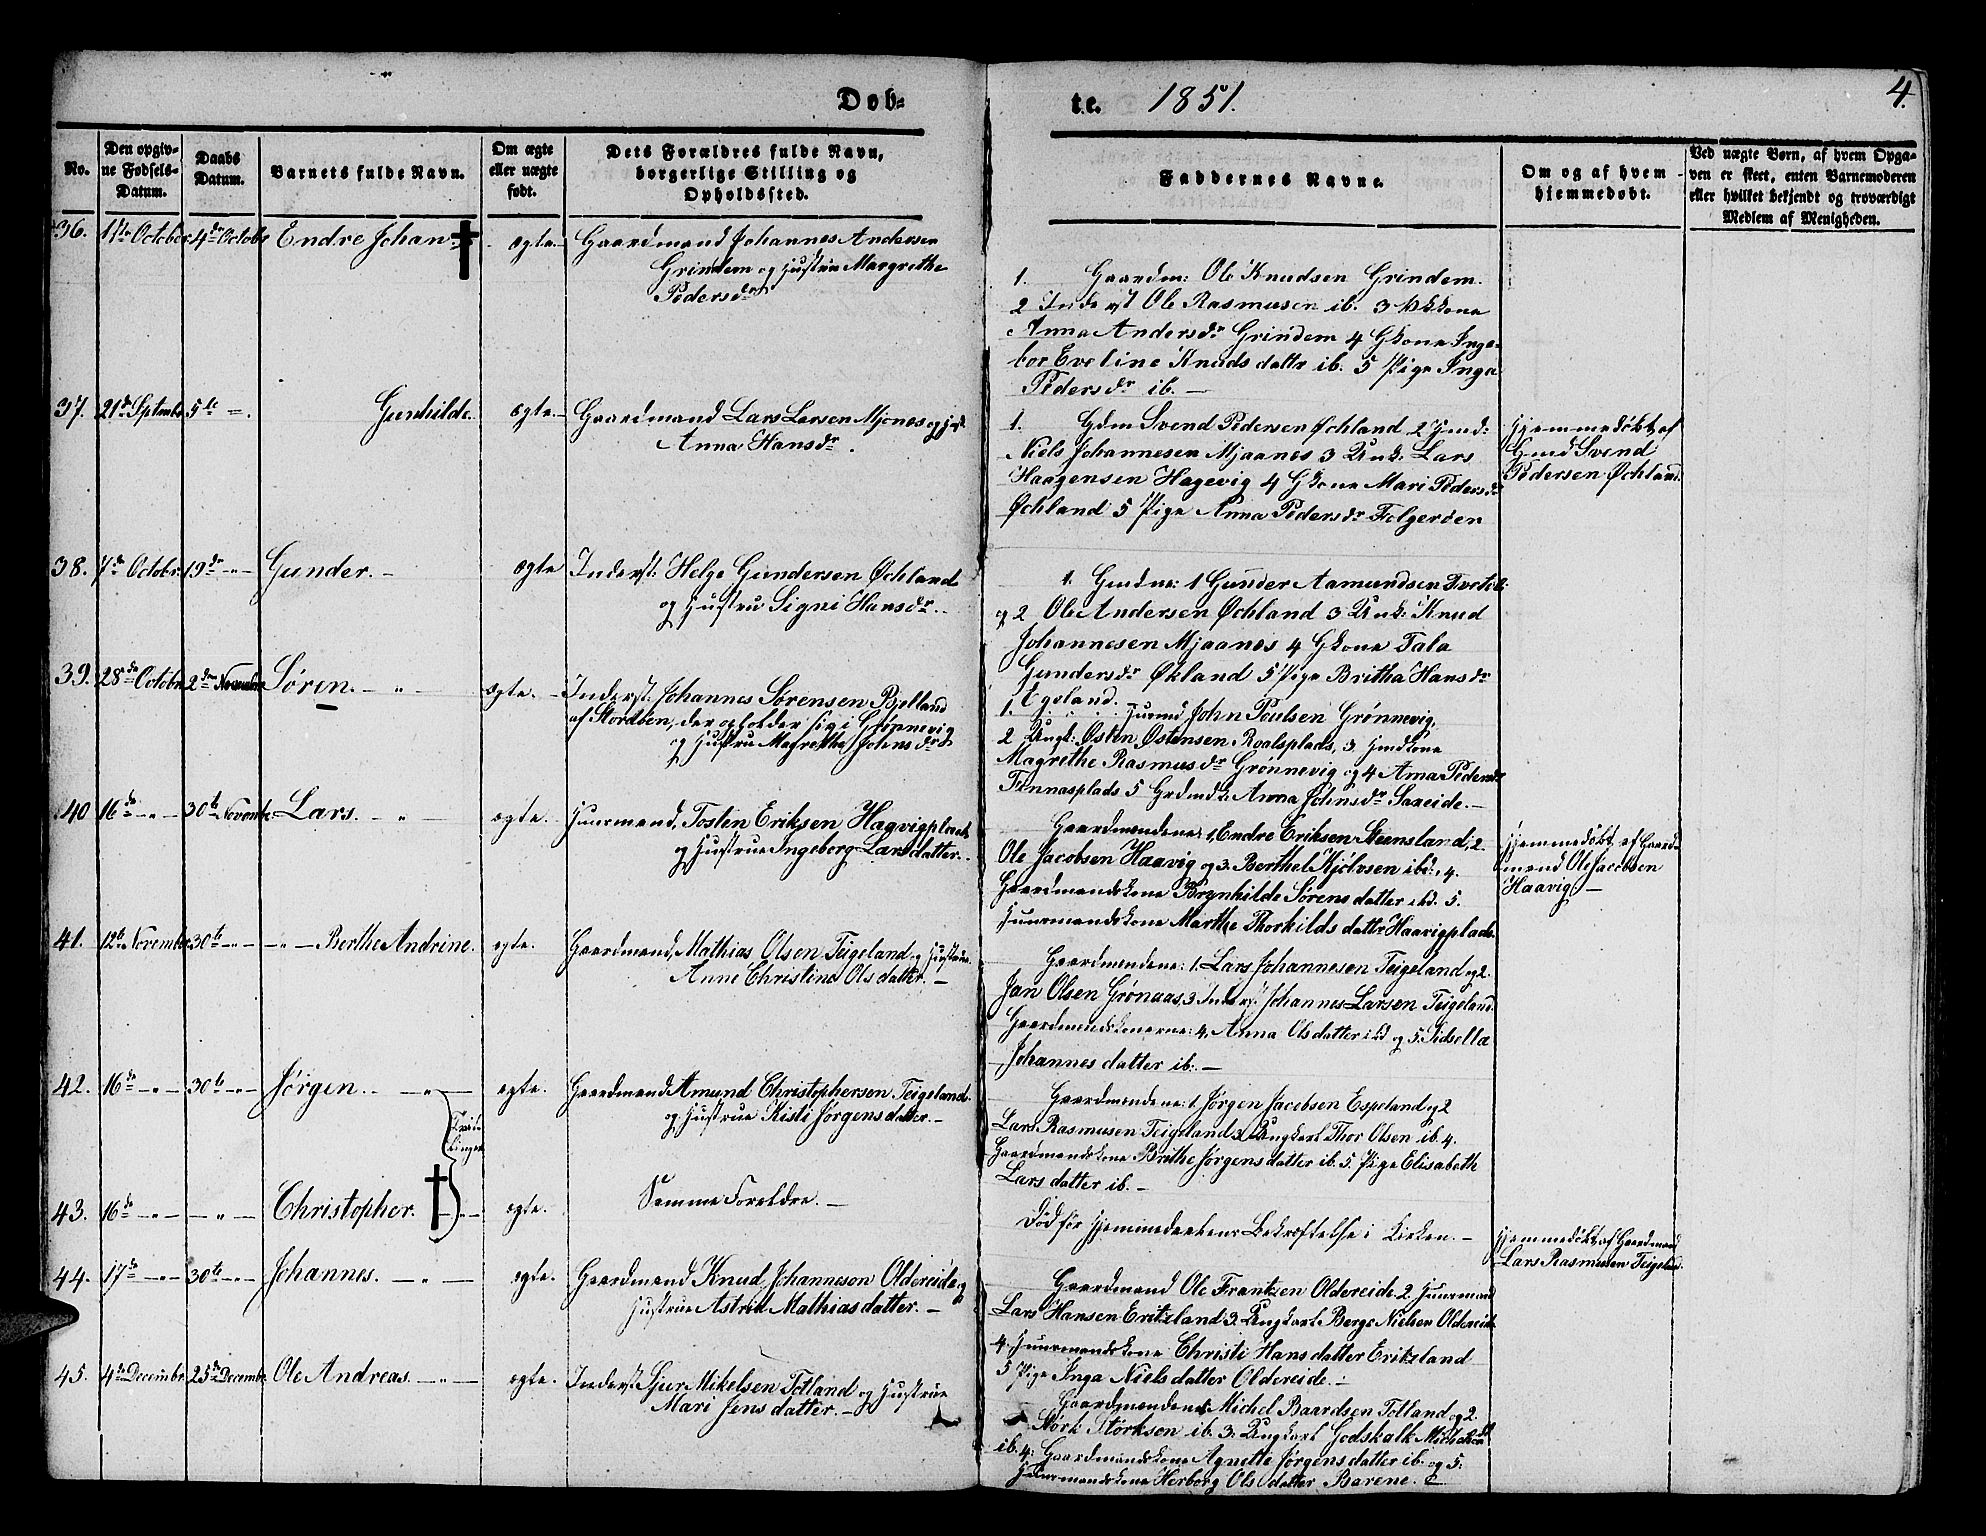 Døb-
te. 1851.
4.
No.
Den opgiv-
ne Fødsels-
Datum.
Daabs
Datum.
Barnets fulde Navn.
Om ægte
eller uægte
født.
Dets Forældres fulde Navn,
borgerlige Stilling og
Opholdssted.
Faddernes Navne.
Om og af hvem
hjemmedøbt.
Ved uægte Børn, af hvem Opga-
ven er skeet, enten Barnemoderen
eller hvilket bekjendt og troværdigt
Medlem af Menigheden.
36. 1ste October 4de Octobr Endre Johan † ægte. Gaardmand Johannes Andersen
Grindem og Hustrue Margrethe
Pedersdr
1. Gaardm: Ole Knudsen Grindem.
2 Inderst Ole Rasmusen ib. 3 Kone
Anna Andersdr Grindem 4 Gkone Inge-
bor Eveline Knudsdattr ib. 5 Pige Inga
Pedersdr ib. —
37. 21de Septembr 5te — Gunhilde. ægte. Gaardmand Lars Larsen Mjones og H
Anna Hansdr.
1. Gdm Svend Pedersen Øchland 2 Hmd:
Niels Johannesen Mjaanes 3 Unk: Lars
Haagensen Hagevig 4 Gkone Mari Pedersdr
Øchland 5 Pige Anna Pedersdr Folgerøen
Hjemmedøbt af
Gmd Svend
Pedersen Øchland.
38. 7de Octobr. 19de —„— Gunder. — ægte Inderst: Helge Gundersen Øchland
og Hustru Signi Hansdr.
1. Gmdne: 1 Gunder Aamundsen Tveted:
og 2 Ole Andersen Øchland 3 Unk: Knud
Johannesen Mjaanes 4 Gkone Tala
Gundersdr Økland 5 Pige Britha Hansdr
Egeland.
39. 28de Octobr 2den November Søren. — „ — ægte. — Inderst. Johannes Sørensen Bjelland
af Stordøen, der opholder sig i Grønnevig
og Hustrue Magrethe Johnsdr
1. Huusmd John Poulsen Grønnevig,
2 Ungk: Østen Østensen Roalsplads, 3 Hmdkone
Magrethe Rasmusdr Grønnevig og 4 Anna Pedersdr
Finnasplads 5 Grdmdk: Anna Johnsdr Sareide. —
40 16de —„— 30te Novembr Lars. — „ — ægte. Huusmand, Tosten Eriksen Hagvigplads
og Hustrue Ingeborg Larsdatter.
Gaardmændene: 1, Endre Eriksen Steensland, 2.
Ole Jacobsen Haavig og 3. Berthel Kjølvsen ibd:, 4.
Gaardmandskone Brynhilde Sørensdatter ibd. 5.
Huusmandskone Marthe Thorkildsdatter Haavigplads.
Hjemmedøbt af Gaard-
mand Ole Jacobsen
Haavig —
41. 12te November 30te —„— —„— Berthe Andrine. ægte. Gaardmand, Mathias Olsen Teigeland og Hustrue
Anne Christine Olsdatter. —
Gaardmændene: 1. Lars Johannesen Teigeland og 2.
Jan Olsen Grønaas, 3. Inderst. Johannes Larsen Teigeland.
Gaardmandskonerne: 4, Anna Olsdatter ibd og 5. Sidsella
Johannesdatter ib. —
42. 16de —„— 30te —„— Jørgen. — „ — ægte. Gaardmand Amund Christophersen Teigeland.
og Hustrue Kisti Jørgensdatter. —
Tvil-
linger
Gaardmændene: 1. Jørgen Jacobsen Espeland og 2
Lars Rasmusen Teigeland 3. Ungkarl Thor Olsen ib. 4.
Gaardmandskone Brithe Jørgensdatter ib. 5. Pige Elisabeth
Larsdatter ib. —
43. 16de —„— — „ — Christopher. † —„— ægte. Samme Forældre. —
Død før Hjemmedaabens Bekræftelse i Kirken. —
Hjemmedøbt af Gaardmand
Lars Rasmusen Teigeland.
44. 17de —„— 30te —„— Johannes. — „ — ægte. Gaardmand Knud Johanneson Oldereide og
Hustrue Astrid Mathiasdatter. —
Gaardmand Ole Frantzen Oldereide. 2. Huusmand
Lars Hansen Eritzland 3. Ungkarl Berge Nielsen Oldereide
4. Huusmandskone Christi Hansdatter Erikzland
5 Pige Inga Nielsdatter Oldereide. —
45. 4de Decembr. 25de Decembr. Ole Andreas. — „ — ægte. Inderst Sjur Mikelsen Totland og Hustrue
Mari Jensdatter. —
Gaardmændene Michel Baardsen Totland og 2.
Størk Størksen ib. 3. Ungkarl Godskalk Michelsen
ib. 4. Gaardmandskone Agnette Jørgensdatter ib. og 5.
Huusmandskone Herborg Olsdatter Barene.